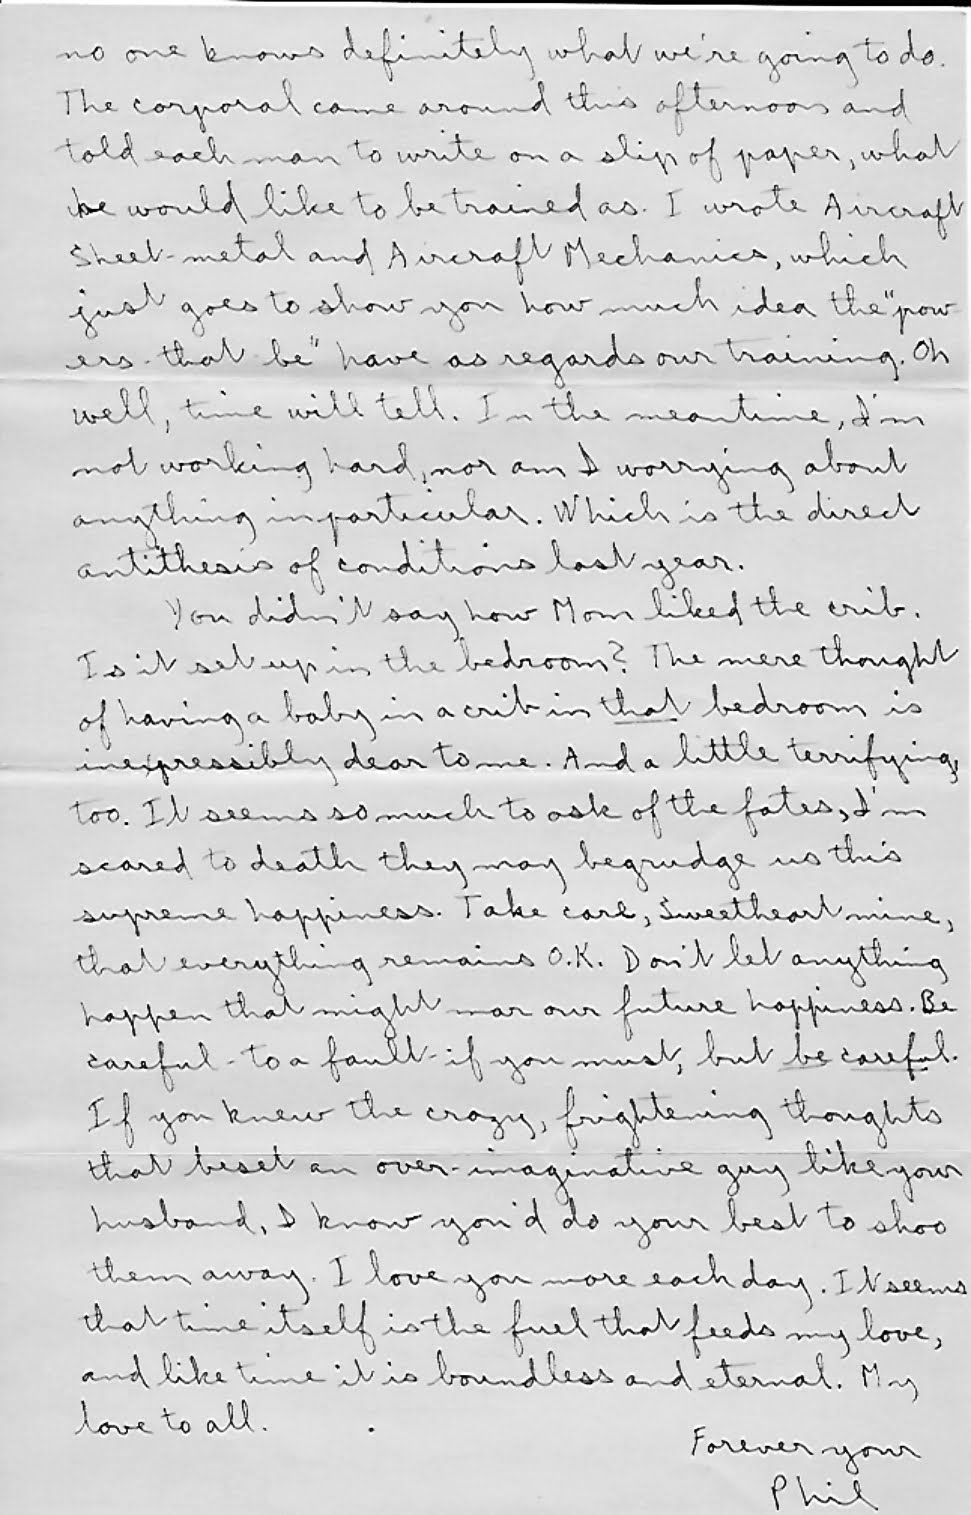 no one knows definitely what we're going to do.
The corporal came around this afternoon and
told each man to write on a slip of paper, what
he would like to be trained as. I wrote Aircraft
Sheet-metal and Aircraft Mechanics, which
just goes to show you how much idea the "pow-
ers-that-be" have as regards our training. Oh
well, time will tell. In the meantime, I'm
not working hard, nor am I worrying about
anything in particular. Which is the direct
antithesis of conditions last year.
You didn't say how Mom liked the crib.
Is it set up in the bedroom? The mere thought
of having a baby in a crib in that bedroom is
inexpressibly dear to me. And a little terrifying,
too. It seems so much to ask of the fates, I'm
scared to death they may begrudge us this
supreme happiness. Take care, Sweetheart mine,
that everything remains O.K. Don't let anything
happen that might mar our future happiness. Be
careful - to a fault - if you must, but be careful.
If you knew the crazy, frightening thoughts
that beset an over-imaginative guy like your
husband, I know you'd do your best to shoo
them away. I love you more each day. It seems
that time itself is the fuel that feeds my love,
and like time it is boundless and eternal. My
love to all.
Forever your
Phil